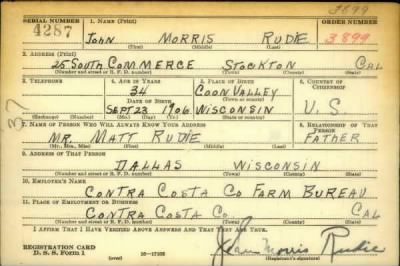 3899
SERIAL NUMBER 1. NAME (Print) ORDER NUMBER
4287 JOHN MORRIS RUDIE 3899
(First) (Middle) (Last)
2. ADDRESS (Print)
25 SOUTH COMMERCE STOCKTON CAL
(Number and street or R. F. D. number) (Town) (County) (State)
3. TELEPHONE 4. AGE IN YEARS 5. PLACE OF BIRTH 6. COUNTRY OF CITIZENSHIP
34 COON VALLEY
DATE OF BIRTH (Town or county)
SEPT 23 1906 WISCONSIN U. S.
(Exchange) (Number) (Mo.) (Day) (Yr.) (State or country)
37
7. NAME OF PERSON WHO WILL ALWAYS KNOW YOUR ADDRESS 8. RELATIONSHIP OF THAT PERSON
MR. MATT RUDIE FATHER
(Mr., Mrs., Miss) (First) (Middle) (Last)
9. ADDRESS OF THAT PERSON
DALLAS WISCONSIN
(Number and street or R. F. D. number) (Town) (County) (State)
10. EMPLOYER'S NAME
CONTRA COSTA CO FARM BUREAU
11. PLACE OF EMPLOYMENT OR BUSINESS
CONTRA COSTA CO. CAL
(Number and street or R. F. D. number) (Town) (County) (State)
I AFFIRM THAT I HAVE VERIFIED ABOVE ANSWERS AND THAT THEY ARE TRUE.
John Morris Rudie
REGISTRATION CARD
D. S. S. Form 1 16-17105 (Registrant's signature)